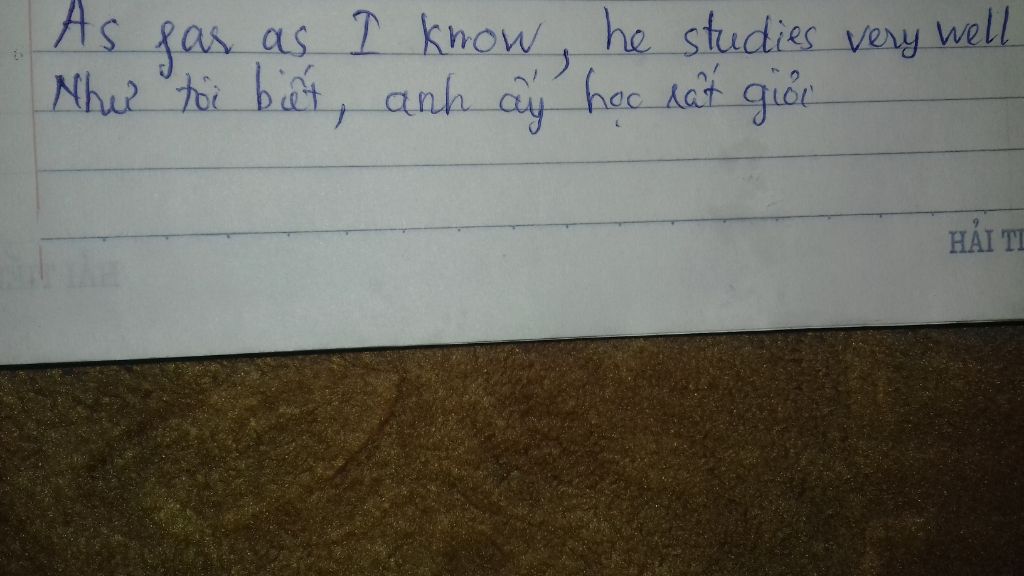 As far as I know, he studies very well
Như tôi biết, anh ấy học rất giỏi
HẢI TI